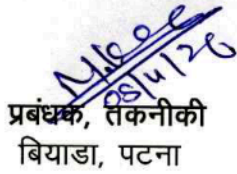 08/4/26
प्रबंधक, तकनीकी
बियाडा, पटना